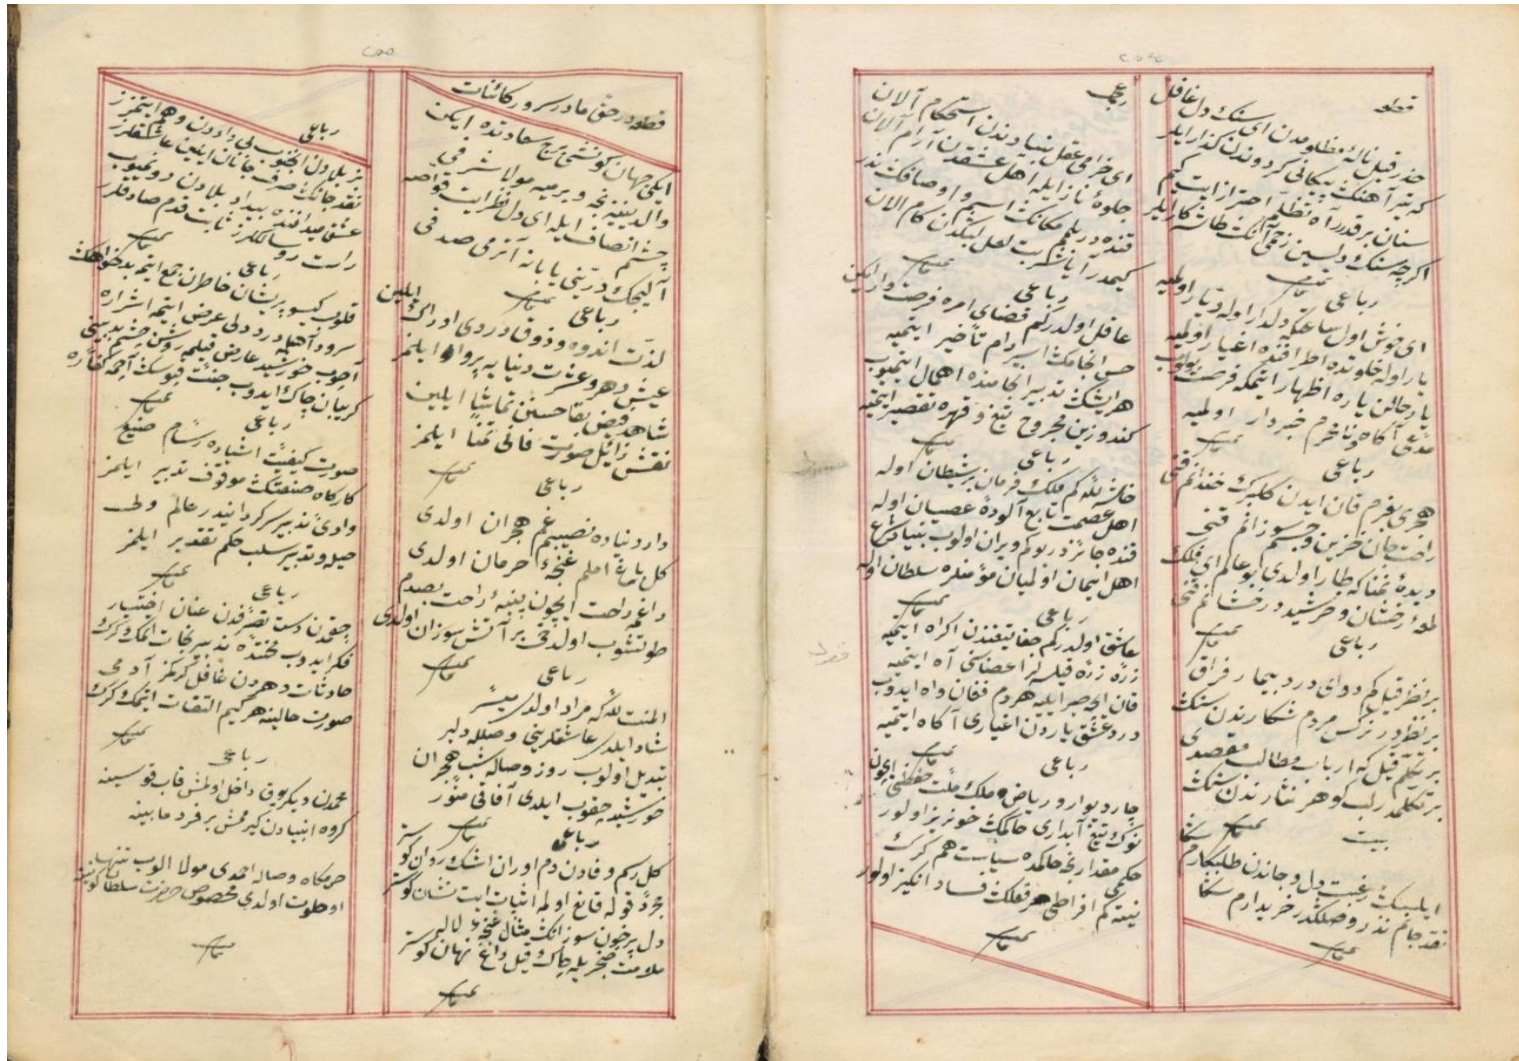 قطعه
حذر قیل ناله مظلومدن ای سنك دل غافل
که تیر آهنك پیکانی کردوندن کذار ایلر
سنان برق در راه تظلم احتراز ایت کیم
اکرچه سنك دلسین زخمی آنك طاشه کار ایلر
تمت
رباعی
ای خوش اول ساعتکه دلدار اوله دیار اولمیه
یار اوله خلوتده اطرافنده اغیار اولمیه
یار حالن یاره اظهار ایتمکه فرصت بولوب
مدعی آکاه و نامحرم خبردار اولمیه
تمت
رباعی
هجری بغرم قان ایدن کلبرك خندانم قنی
راحت جان حزین و جسم سوزانم قنی
دیده نمناکه طار اولدی بو عالم ای فلك
طلعت رخشان و خرشید درخشانم قنی
تمت
رباعی
بر نظر قیل کم دوای درد بیمار فراق
بر نظردر نرکس مردم شکارندن سنك
بر تکلم قیل که ارباب مطالب مقصدی
بر تکلمدر لب کوهر نثارندن سنك
تمت
بیت
ایلمیك رغبت دل و جاندن طلبکارم سکا
نقد جانم نذر وصلکدر خریدارم سکا
تمت
رباعی
ای خرامی عقل بنیادندن استحکام آلان
جلوه ناز ایله اهل عشقدن آرام آلان
قنده در بلمم مکانك اسم و اوصافك ندر
کیمدر آیا شربت لعل لبکدن کام آلان
تمت
رباعی
عاقل اولدر کم قضای امره فرصت وار ایکن
حسن انجامك اسیر دام تأخیر ایتمیه
هر ایشك تدبیر انجامنده اهمال ایتمیوب
کندوزین مجروح تیغ و قهره تقصیر ایتمیه
تمت
رباعی
حاش لله کم ملك فرمان بر شیطان اوله
اهل عصمت تابع آلوده عصیان اوله
قنده جائزدر بو کم ویران اولوب بنیاد شرع
اهل ایمان اولمیان مؤمنلره سلطان اوله
تمت
رباعی
عاشق اولدر کم جفا چکمکدن اکراه ایتمیه
زره زره قیلسه لر اعضاسنی آه ایتمیه
قان ایچر صبر ایلیه هر دم فغان و آه ایدوب
درد عشق یاردن اغیاری آکاه ایتمیه
تمت
رباعی
چار دیوار ریاض ملك ملت حفظی ایچون
نوك تیغ آبداری حاکمك خونریز اولور
حکمی مقدارنجه حاکمده سیاست هم کرك
نیته کم افراطی هر قهرك فساد انکیز اولور
تمت
قطعه در حق مادر سرور کائنات
ایکی جهان کونشی برج سعادتده ایکن
والدینینه نیجه ویرمیه مولا شرفی
چشم انصاف ایله ای دل نظر ایت غواصه
آلیجك درّینی یابانه آترمی صدفی
تمت
رباعی
لذت اندوه و ذوق دردی ادراك ایلین
عیش دهر و عشرت دنیایه پروا ایلمز
شاهد فیض بقا حسنن تماشا ایلین
نقش زائل صورت فانی تمنا ایلمز
تمت
رباعی
دار دنیاده نصیبم غم هجران اولدی
کل باغ املم غنچه حرمان اولدی
داغمه راحت ایچون پنبه راحت بصدم
طوتشوب اولدخی بر آتش سوزان اولدی
تمت
رباعی
المنت لله که مراد اولدی میسر
شاد ایلدی عاشقلرینی وصلله دلبر
تبدیل اولوب روز وصاله شب هجران
خورشید چیقوب ایلدی آفاقی منور
تمت
رباعی
کل رسم وفادن دم اوران اشك روان کوستر
مجرد قوله قانع اولمه اثبات ایت نشان کوستر
دل پر خون سوزانك مثال غنچه لاله
ملامت خنجریله چاك قیل داغ نهان کوستر
تمت
رباعی
بز بلادن اجتنوب بی داددن وهم ایتمزز
نقد جانك صرف جانان ایلین عاشقلرز
عشق میداننده بیداد و بلادن دونمیوب
راست رو سالکلرز ثابت قدم صادقلرز
تمت
رباعی
قلوب کیسو پریشان خاطرن جمع ایتمه بدخواهك
سرود آهله درد دلی عرض ایتمه اشراره
آچوب خورشید عارض قیلمه روشن چشم بدبینی
کریبان چاك ایدوب جنت قپوسك آچمه کفاره
تمت
رباعی
صورت کیفیت اشیاده رسام صنیع
کارکاه صنعتك موقوف تدبیر ایلمز
وادئ تدبیر سرکردانیدر عالم ولی
حیله و تدبیر سلب حکم تقدیر ایلمز
تمت
رباعی
چیقمدن دست تصرفدن عنان اختیار
فکر ایدوب محنتده تدبیر نجات ایتمك کرك
حادثات دهردن غافل کرکمز آدمی
صورت حالینه هر کیم التفات ایتمك کرك
تمت
رباعی
محمددن دیکر یوق داخل اولمش قاب قوسینه
کروه انبیادن کیرممش بر فرد مابینه
حرمکاه وصاله احمدی مولا الوب تنها
او خلوت اولدی مخصوص حضرت سلطان کونینه
تمت